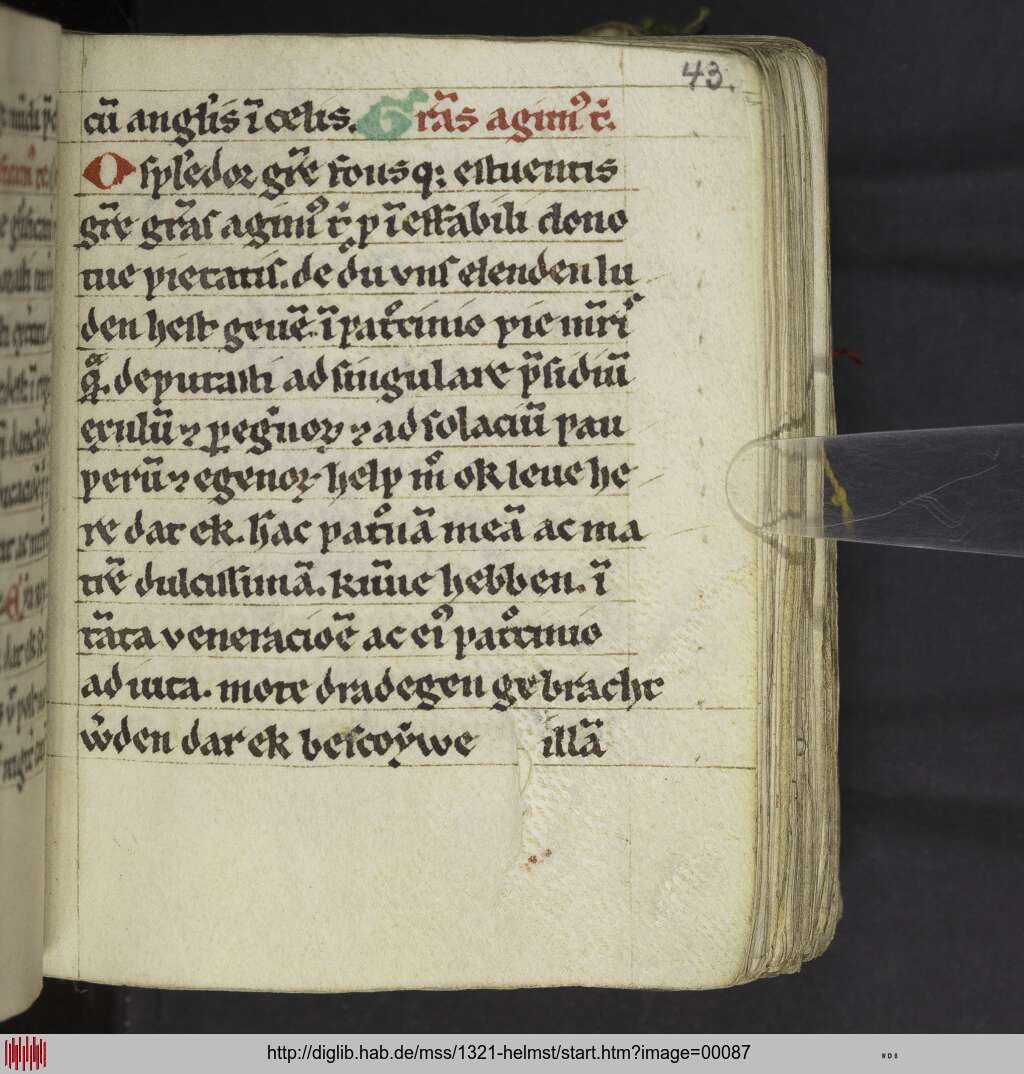 43.
cū anglʼis ī celis. Grās agimꝰ t̄.
O splēdor glr̄e fonsqꝫ estuentis
gr̄e grās agimꝰ t̄ p īeffabili dono
tue pietatis. de du vns elenden lu
den hest geuē. ī patͦcinio pie mr̄is
qᵃ. deputasti ad singulare p̄sidiū
exulū ⁊ ꝑegͥnoꝝ ⁊ ad solaciū pau
perū ⁊ egenoꝝ help mͦ ok leue he
re dat ek. hac patͦnā meā ac ma
trē dulcissimā. kūne hebben. ī
tāta veneracioē ac eiꝰ patͦcinio
ad iuta. mote dradegen gebracht
wͦden dat ek bescoywe illā
http://diglib.hab.de/mss/1321-helmst/start.htm?image=00087